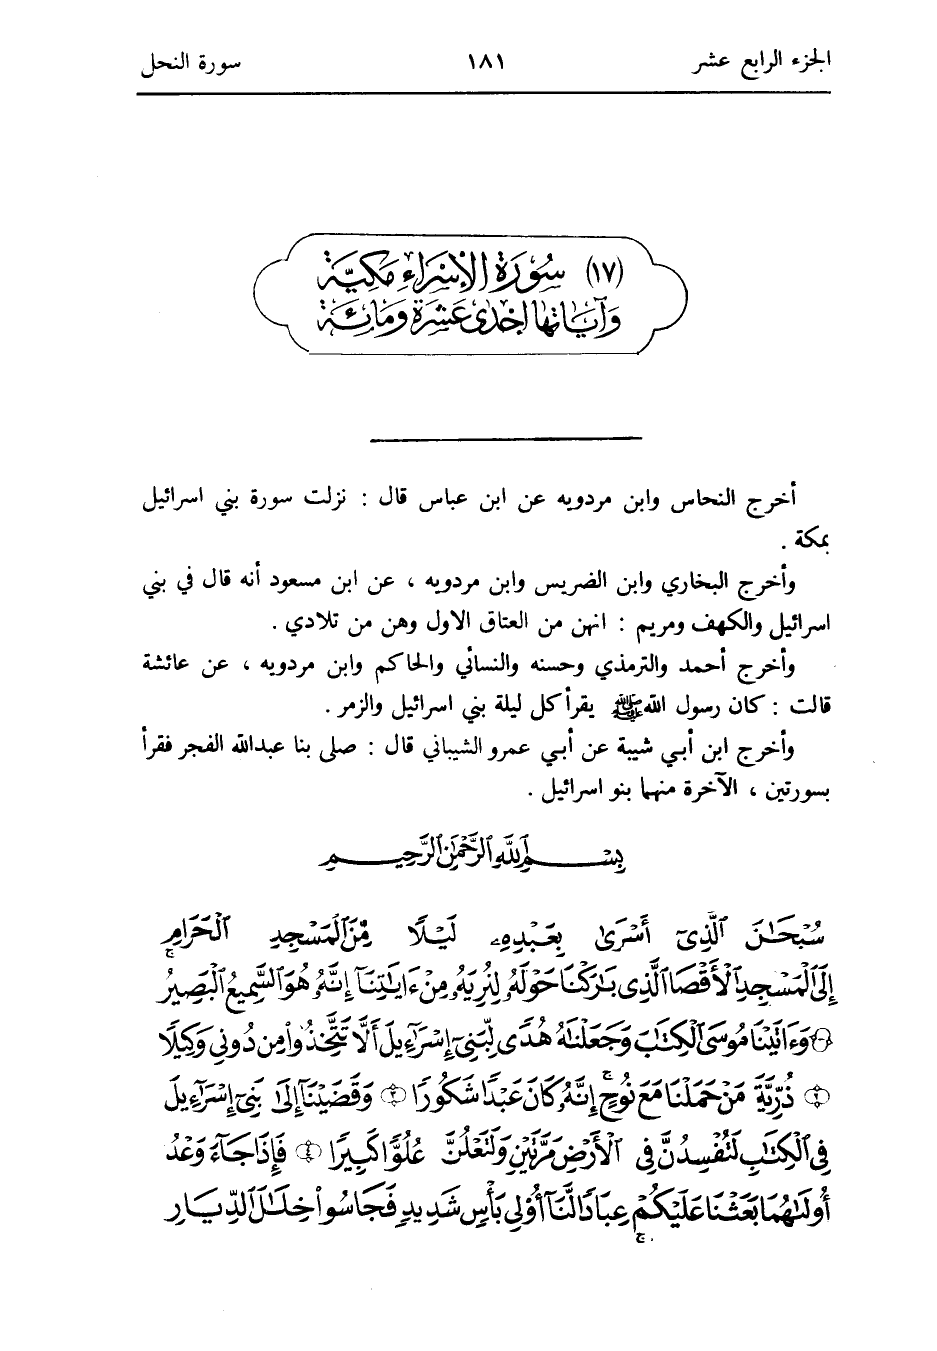 الجزء الرابع عشر ١٨١ سورة النحل
(١٧) سُورَة الإِسْرَاءِ مَكيَّة
وَآيَاتها احْدَى عَشرَة وَمَائِة
أخرج النحاس وابن مردويه عن ابن عباس قال : نزلت سورة بني اسرائيل
بمكة .
وأخرج البخاري وابن الضريس وابن مردويه ، عن ابن مسعود أنه قال في بني
اسرائيل والكهف ومريم : انهن من العتاق الاول وهن من تلادي .
وأخرج أحمد والترمذي وحسنه والنسائي والحاكم وابن مردويه ، عن عائشة
قالت : كان رسول الله ﷺ يقرأ كل ليلة بني اسرائيل والزمر .
وأخرج ابن أبي شيبة عن أبي عمرو الشيباني قال : صلى بنا عبدالله الفجر فقرأ
بسورتين ، الآخرة منهما بنو اسرائيل .
بِسْمِ ٱللَّهِ ٱلرَّحْمَٰنِ ٱلرَّحِيمِ
سُبْحَٰنَ ٱلَّذِىٓ أَسْرَىٰ بِعَبْدِهِۦ لَيْلًا مِّنَ ٱلْمَسْجِدِ ٱلْحَرَامِ
إِلَى ٱلْمَسْجِدِ ٱلْأَقْصَا ٱلَّذِى بَٰرَكْنَا حَوْلَهُۥ لِنُرِيَهُۥ مِنْ ءَايَٰتِنَآ إِنَّهُۥ هُوَ ٱلسَّمِيعُ ٱلْبَصِيرُ
۝١ وَءَاتَيْنَا مُوسَى ٱلْكِتَٰبَ وَجَعَلْنَٰهُ هُدًى لِّبَنِىٓ إِسْرَٰٓءِيلَ أَلَّا تَتَّخِذُوا۟ مِن دُونِى وَكِيلًا
۝٢ ذُرِّيَّةَ مَنْ حَمَلْنَا مَعَ نُوحٍ ۚ إِنَّهُۥ كَانَ عَبْدًا شَكُورًا ۝٣ وَقَضَيْنَآ إِلَىٰ بَنِىٓ إِسْرَٰٓءِيلَ
فِى ٱلْكِتَٰبِ لَتُفْسِدُنَّ فِى ٱلْأَرْضِ مَرَّتَيْنِ وَلَتَعْلُنَّ عُلُوًّا كَبِيرًا ۝٤ فَإِذَا جَآءَ وَعْدُ
أُولَىٰهُمَا بَعَثْنَا عَلَيْكُمْ عِبَادًا لَّنَآ أُو۟لِى بَأْسٍ شَدِيدٍ فَجَاسُوا۟ خِلَٰلَ ٱلدِّيَارِ ۚ